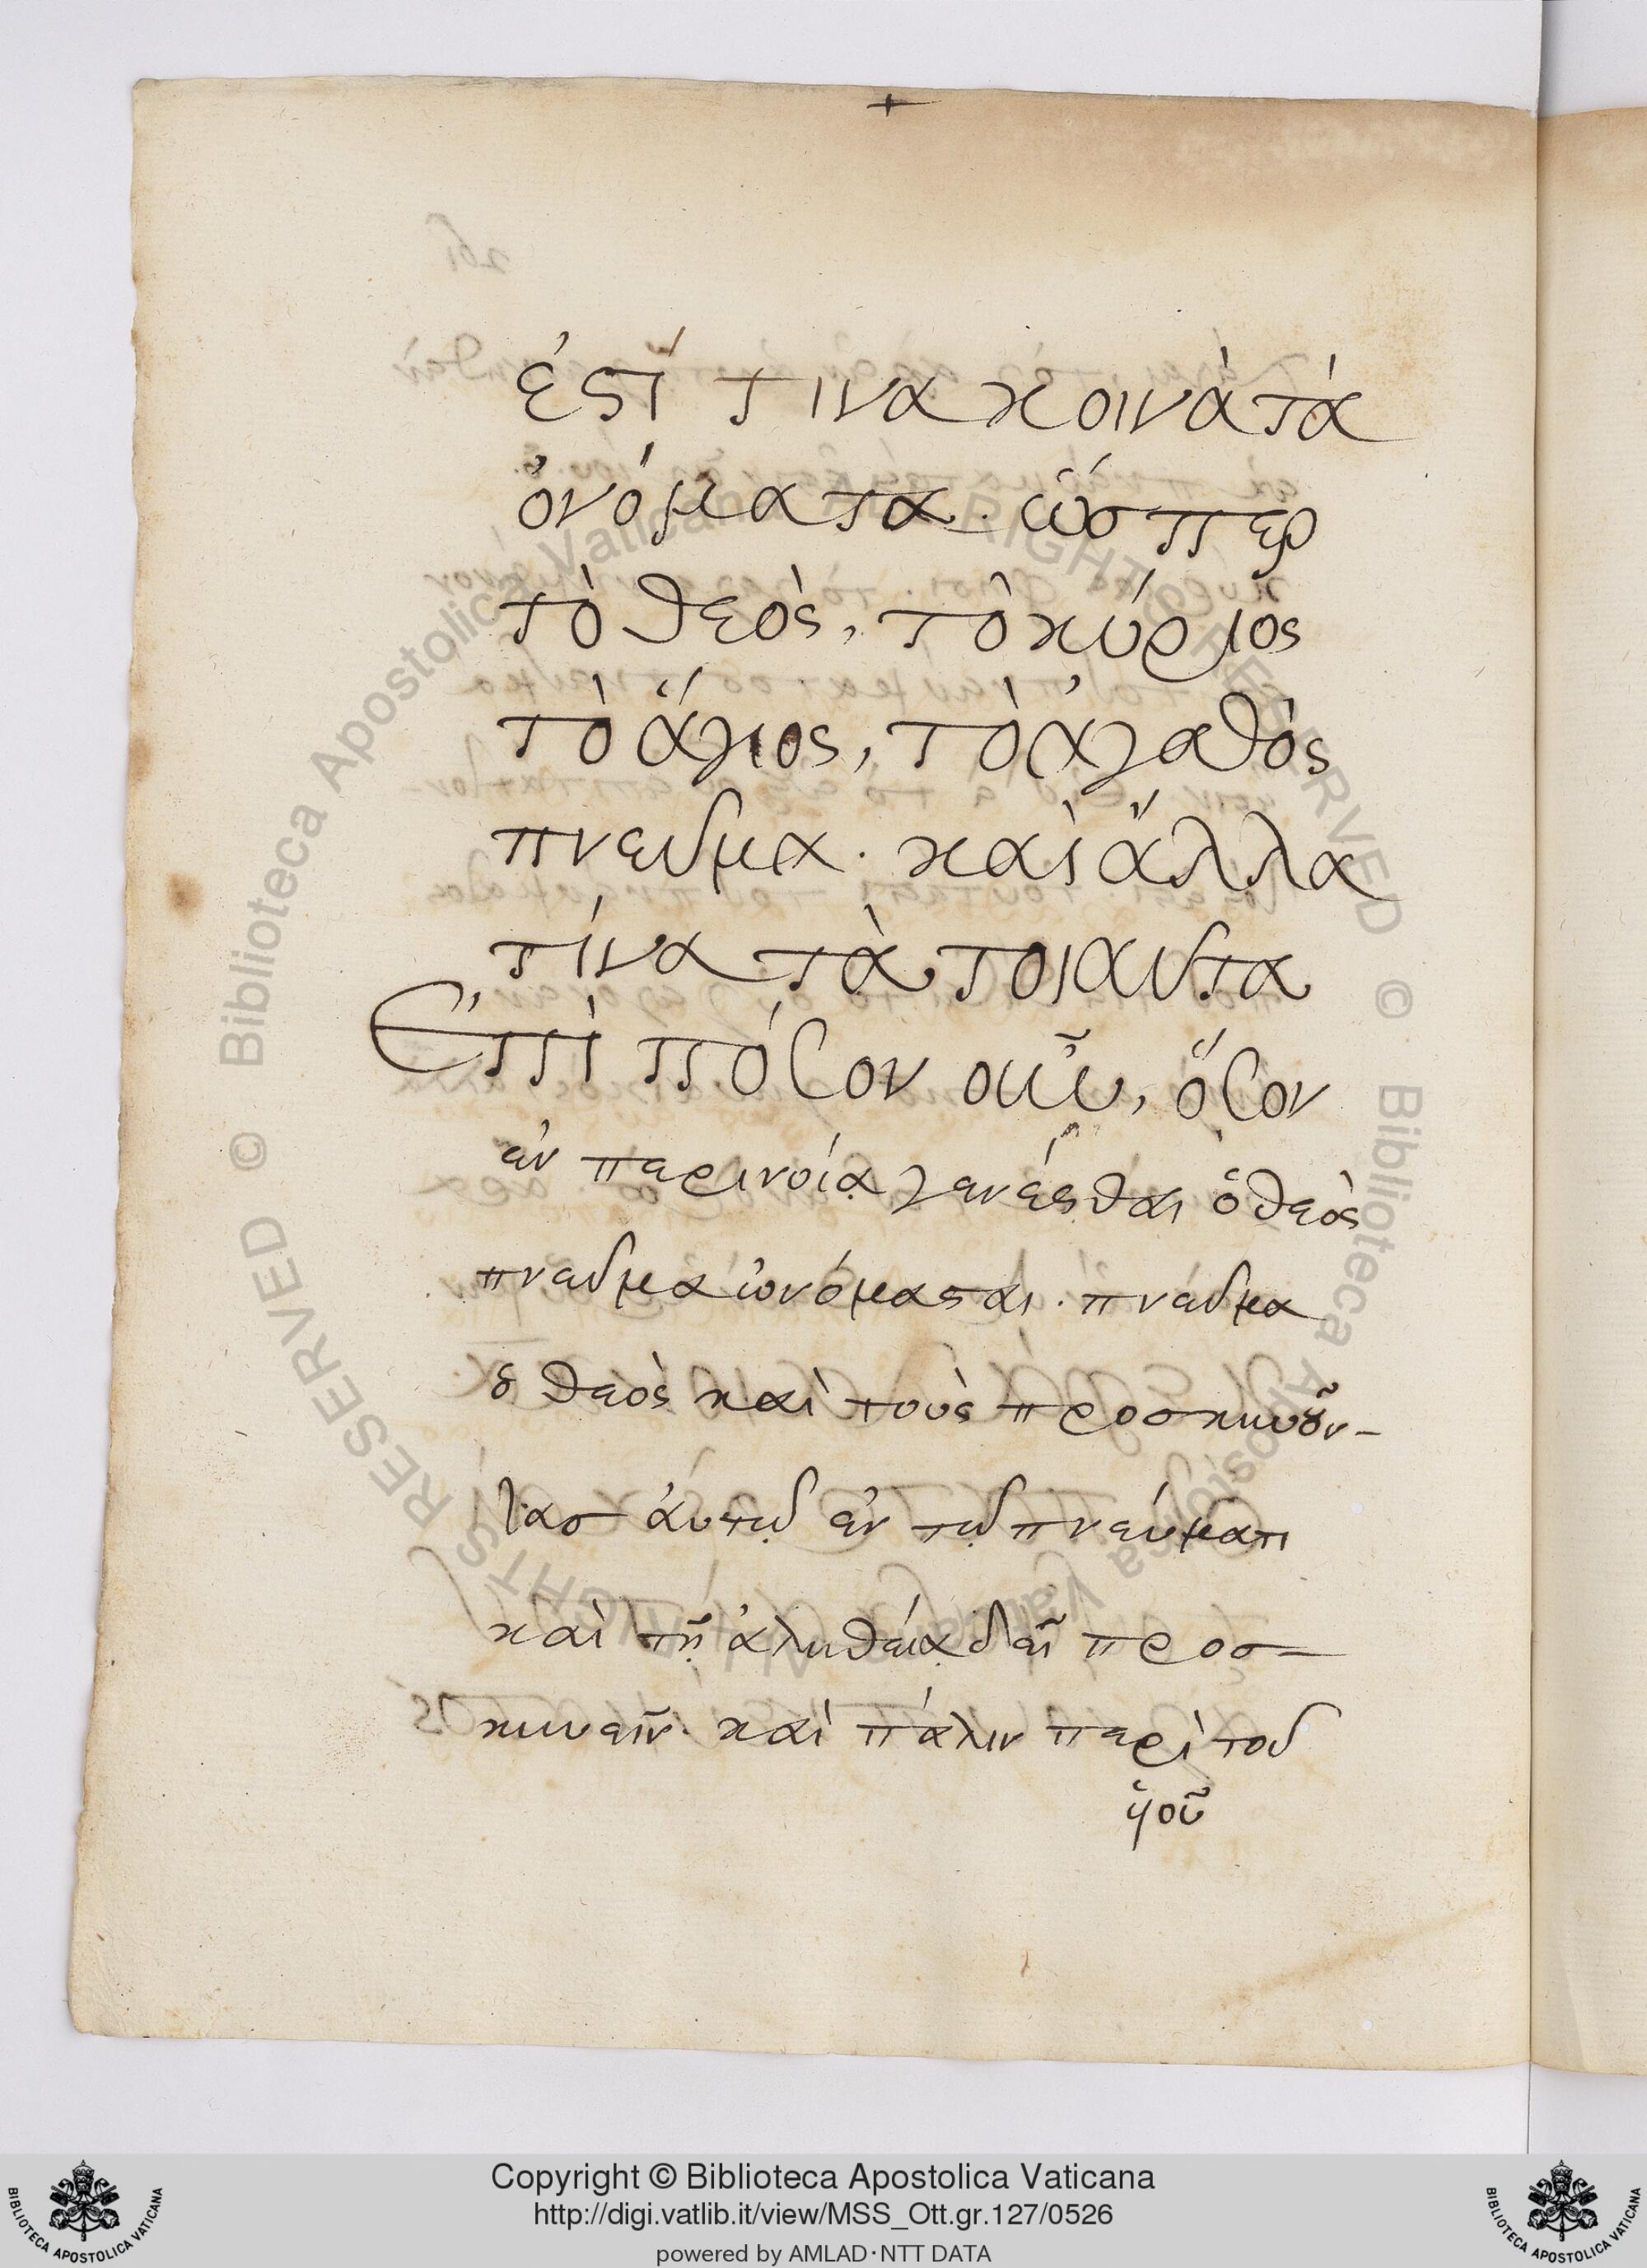 +
ἐστί τινα κοινὰ τὰ
ὀνόματα. ὥσπερ
τὸ θεὸς, τὸ κύριος
τὸ ἅγιος, τὸ ἀγαθὸς
πνεῦμα. καὶ ἄλλα
τίνα τὰ τοιαῦτα
Ἐπὶ πόσον οὖν, ὅσον
ἐν περινοίᾳ γενέσθαι ὁ θεὸς
πνεῦμα ὠνόμασται. πνεῦμα
ὁ θεὸς καὶ τοὺς προσκυνοῦν-
τας αὐτῷ ἐν τῷ πνεύματι
καὶ τῇ ἀληθείᾳ δεῖ προσ-
κυνεῖν. καὶ πάλιν περὶ τοῦ
ὑοῦ
© Biblioteca Apostolica Vaticana ALL RIGHTS RESERVED © Biblioteca Apostolica Vaticana ALL RIGHTS RESERVED
Copyright © Biblioteca Apostolica Vaticana
http://digi.vatlib.it/view/MSS_Ott.gr.127/0526
powered by AMLAD·NTT DATA
BIBLIOTECA APOSTOLICA VATICANA
BIBLIOTECA APOSTOLICA VATICANA